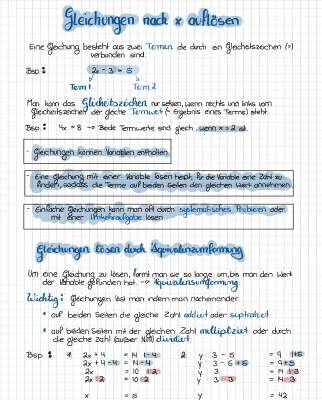 Gleichungen nach x auflösen
Eine Gleichung besteht aus zwei Termen die durch ein Gleichheitszeichen (=)
verbunden sind.
Bsp.: 2x - 3 = 5
Term 1 Term 2
Man kann das Gleichheitszeichen nur setzen, wenn rechts und links vom
Gleichheitszeichen der gleiche Termwert (= Ergebnis eines Terms) steht.
Bsp.: 4x = 8 → Beide Termwerte sind gleich, wenn x = 2 ist.
- Gleichungen können Variablen enthalten
- Eine Gleichung mit einer Variable lösen heißt, für die Variable eine Zahl zu
finden, sodass die Terme auf beiden Seiten den gleichen Wert annehmen.
- Einfache Gleichungen kann man oft durch systematisches Probieren oder
mit einer Umkehraufgabe lösen
Gleichungen lösen durch Äquivalenzumformung
Um eine Gleichung zu lösen, formt man sie so lange um, bis man den Wert
der Variable gefunden hat. → Äquivalenzumformung
Wichtig: Gleichungen löst man indem man nacheinander:
• auf beiden Seiten die gleiche Zahl addiert oder subtrahiert
• auf beiden Seiten mit der gleichen Zahl multipliziert oder durch
die gleiche Zahl (außer Null) dividiert.
Bsp.: 1. 2x + 4 = 14 |-4 2. y : 3 - 5 = 9 |+5
2x + 4 - 4 = 14 - 4 y : 3 - 5 + 5 = 9 + 5
2x = 10 |:2 y : 3 = 14 |·3
2x : 2 = 10 : 2 y : 3 · 3 = 14 · 3
x = 5 y = 42